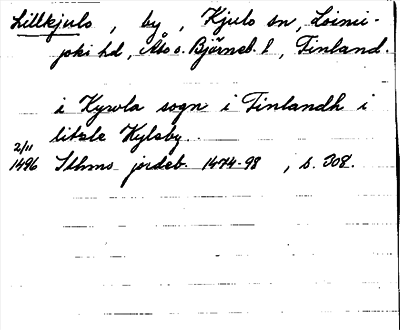 Lillkjulo, by, Kjulo sn, Loimi-
joki hd, Åbo o. Björneb. l, Finland.
i Kywla sogn i Finlandh i
litzle Kylaby.
2/11
1496 Sthms jordeb. 1474-98, s. 308.